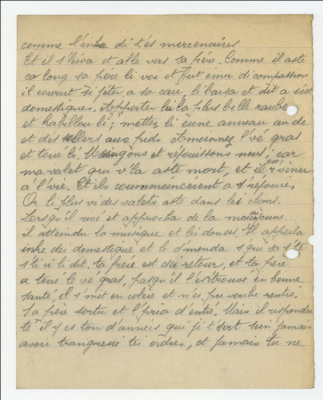 comme l'enke di tés mercenaires
Et il s'leva et alle vers sa père. Comme il aste
co long sa père li vei et fut emu di compassion
il courut si jeter a sa cau, le baisa et dit a sés
domestiques. Apporter la plus belle raube
et habillau li; mettez li eune anneau au dé
et des sollers aux pids. Ameinnez l'vé gras
et tous le. Mangons et réjouissons nous, car
ma valet que v'la aste mort, et il r'vient
a l'vie. Et ils coummencirent a s'rejouir.
Or le plus vi des valets aste dans les champs.
Lorsqu'il r'vei et approcha de la mauson
il attendu la musique et les danses. Il appela
inke de domestiques et li d'menda s'qui sa s'té
s'ti ci li dit, ta frère est dei r'tour, et ta père
a tous le vé gras, pasqu'il l'és r'trouve en bonne
santé, il s'met en colère et n'és pu voulu rentré.
Sa père sortu et l'pria d'entré. Mais il respondu
té il y es ton d'années qui j't'sert sin jamais
avoir transgressé té ordres, et jamais tu ne